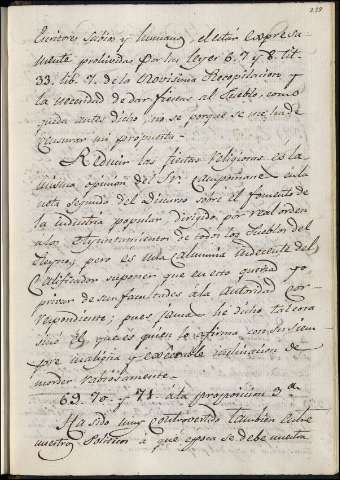 Escritores Sabios y humanos, el estar expresa-
mente prohividas por las leyes 6. 7 y 8. tit.
33. lib. 7. de la Novisima Recopilacion y
la necesidad de dar fiestas al Pueblo, como
queda antes dicho, no se porque se me ha de
censurar mi propuesta.
Reducir las fiestas religiosas es la
misma opinion del Sr. Campomanes en la
nota segunda del discurso sobre el fomento de
la industria popular, dirigido por real orden
a los Ayuntamientos de todos los Pueblos del
Reyno; pero es una Calumnia indecente del
Calificador suponer que en esto quería yo
privar de sus facultades á la autoridad cor-
respondiente; pues jamas he dicho tal cosa
sino el, que es quien lo afirma con su siem-
pre maligna y execrable inclinacion de
morder rabiosamente.
69. 70. y 71. á la proposicion 3.a
Ha sido muy controvertido tambien entre
nuestros Politicos á que epoca se debe nuestra